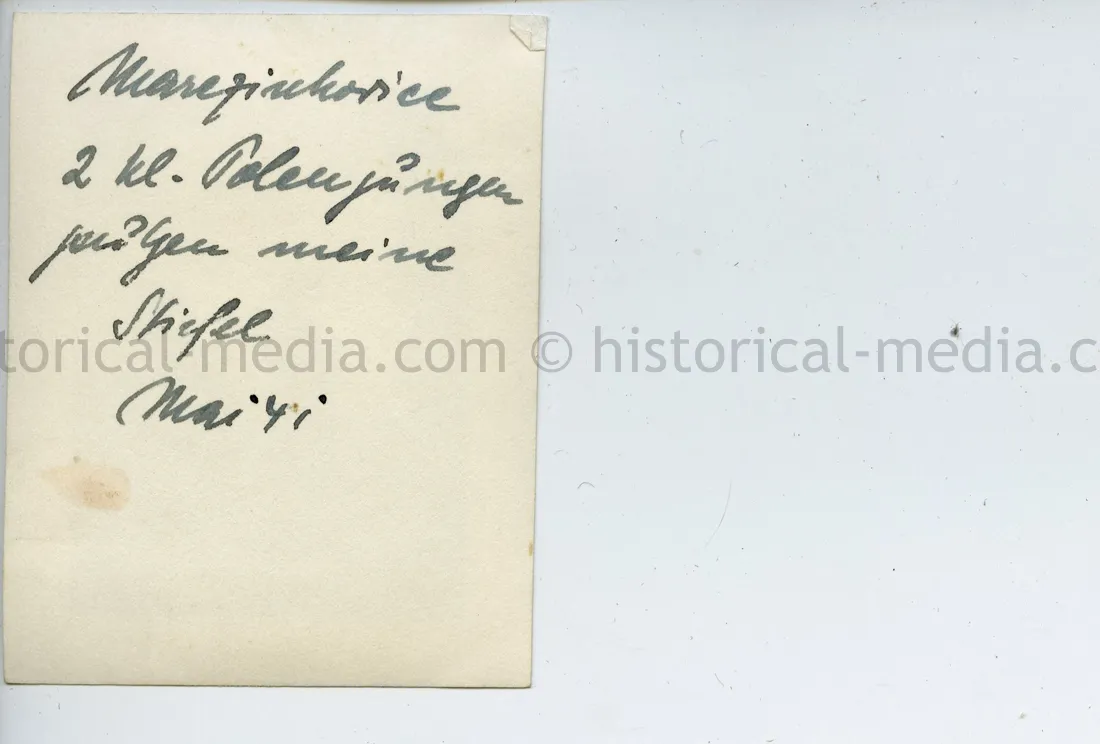 Marczinkovice
2 kl. Polenjungen
putzen meine
Stiefel
Mai 41
torical-media.com © historical-media.c